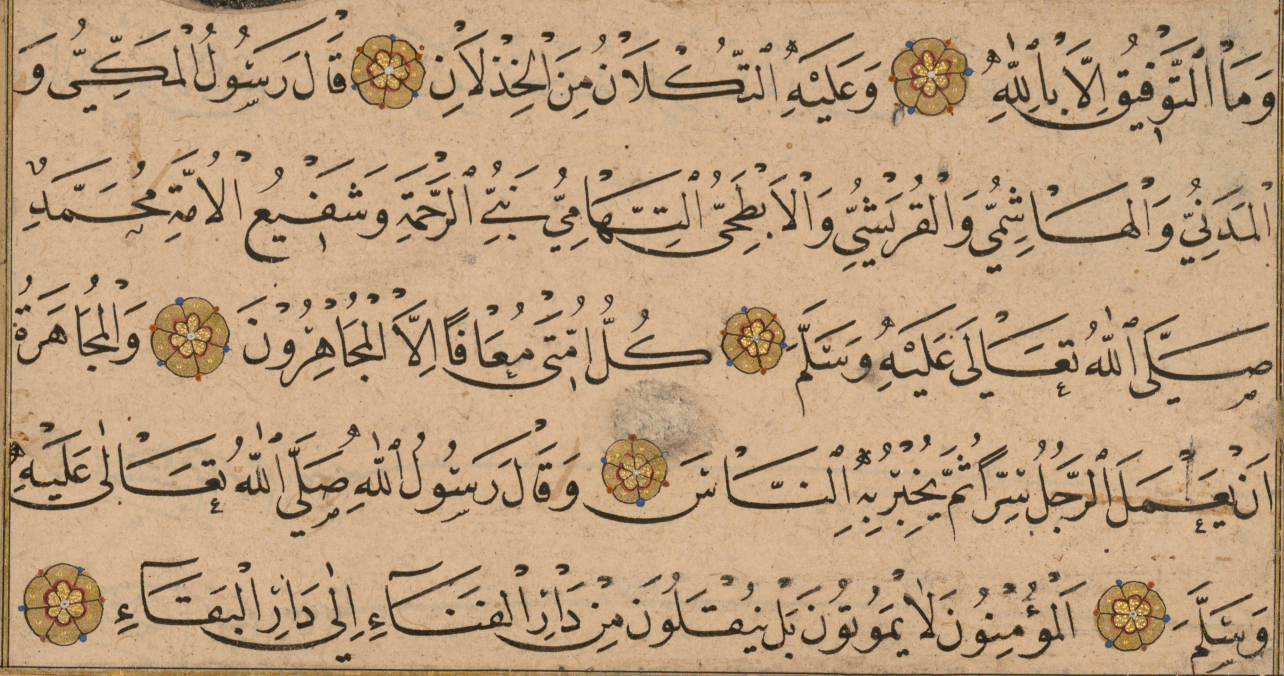 وَمَا التَّوْفِيقُ اِلَّا بِاللّٰهِ وَعَلَيْهِ التُّكْلَانُ مِنَ الْخِذْلَانِ قَالَ رَسُولُ الْمَكِّيُّ وَ
الْمَدَنِيُّ وَالْهَاشِمِيُّ وَالْقُرَيْشِيُّ وَالْاَبْطَحِيُّ التِّهَامِيُّ نَبِيُّ الرَّحْمَةِ وَشَفِيعُ الْاُمَّةِ مُحَمَّدٌ
صَلَّى اللّٰهُ تَعَالَى عَلَيْهِ وَسَلَّمَ كُلُّ اُمَّتِى مُعَافًا اِلَّا الْمُجَاهِرُونَ وَالْمُجَاهَرَةُ
اَنْ يَعْمَلَ الرَّجُلُ سِرًّا ثُمَّ يُخْبِرُ بِهِ النَّاسَ وَقَالَ رَسُولُ اللّٰهِ صَلَّى اللّٰهُ تَعَالٰى عَلَيْهِ
وَسَلَّمَ اَلْمُؤْمِنُونَ لَا يَمُوتُونَ بَلْ يُنْقَلُونَ مِنْ دَارِ الْفَنَاءِ اِلٰى دَارِ الْبَقَاءِ